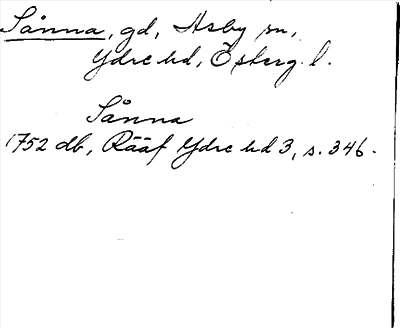 Sånna, gd, Asby sn,
Ydre hd, Österg. l.
Sånna
1752 db, Rääf Ydre hd 3, s. 346.